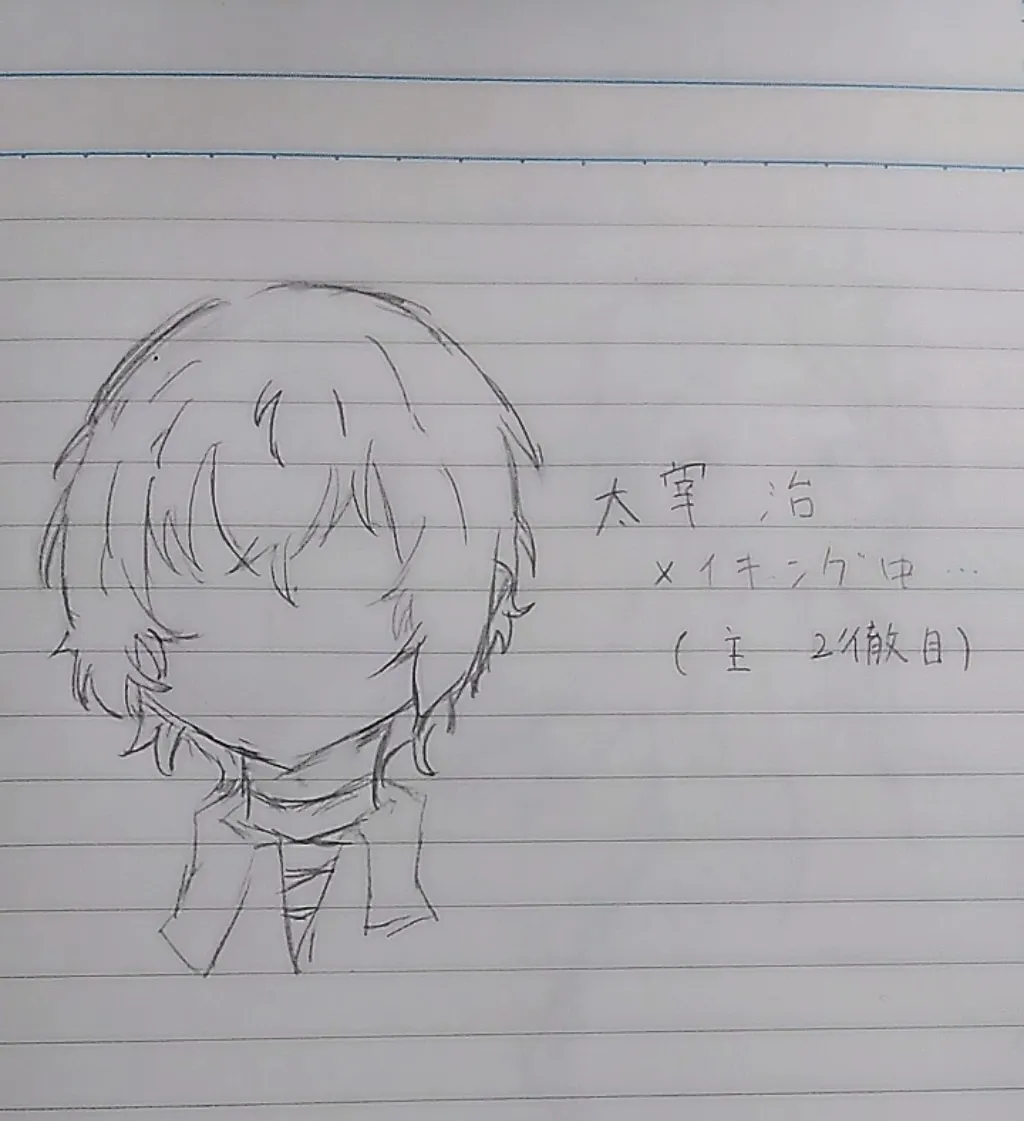 太宰 治
メイキング中…
(主 2徹目)